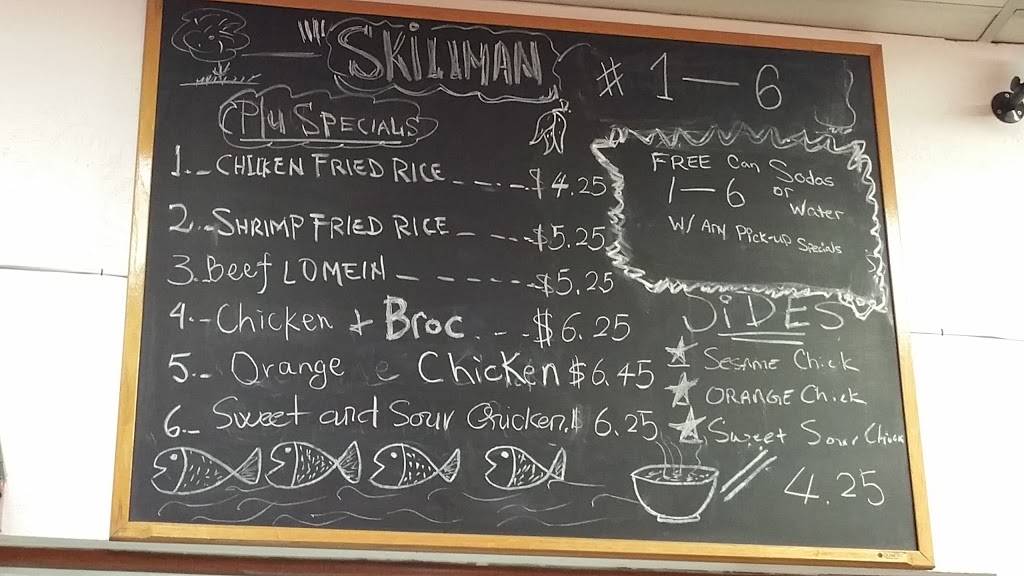 SKILLMAN
# 1 — 6
P/U SPECIALS
1.- CHICKEN FRIED RICE - - - - $4.25
2.- SHRIMP FRIED RICE - - - - $5.25
3. Beef LOMEIN - - - - - - $5.25
4.- Chicken + Broc. - - $6.25
5.- Orange Chicken $6.45
6.- Sweet and Sour Chicken $6.25
FREE Can Sodas
1 — 6 or
Water
W/ Any Pick-up Specials
SIDES
SESAME Chick
ORANGE Chick
Sweet Sour Chick
4.25